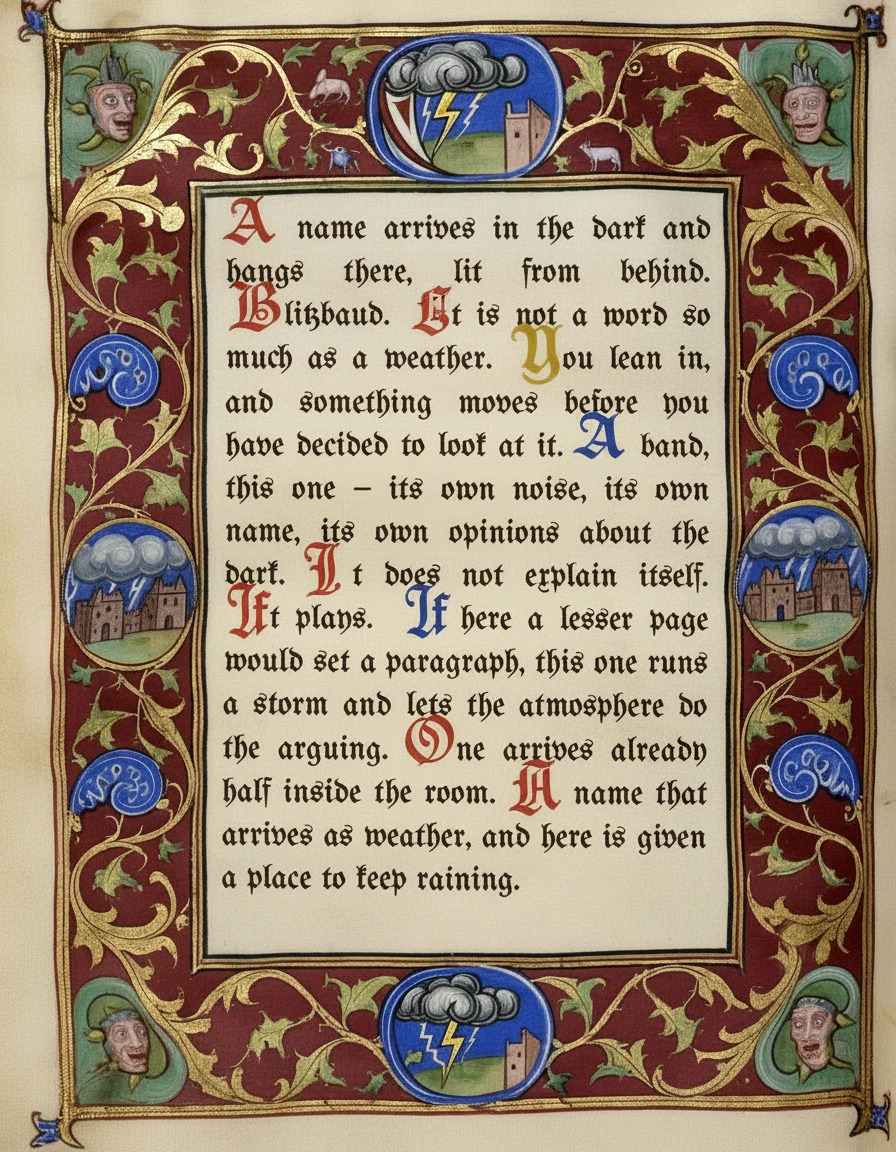 A name arrives in the dark and
hangs there, lit from behind.
Blitzbaud. Et is not a word so
much as a weather. You lean in,
and something moves before you
have decided to look at it. A band,
this one – its own noise, its own
name, its own opinions about the
dark. It does not explain itself.
Ift plays. If here a lesser page
would set a paragraph, this one runs
a storm and lets the atmosphere do
the arguing. One arrives already
half inside the room. A name that
arrives as weather, and here is given
a place to keep raining.